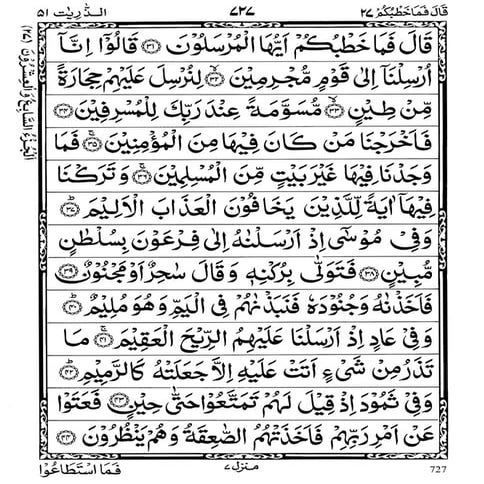 قَالَ فَمَا خَطْبُكُمْ ٢٧ ٧٢٧ الذّٰرِيٰت ٥١
قَالَ فَمَا خَطْبُكُمْ اَيُّهَا الْمُرْسَلُوْنَ ۝٣١ قَالُوْٓا اِنَّآ
اُرْسِلْنَآ اِلٰى قَوْمٍ مُّجْرِمِيْنَ ۝٣٢ لِنُرْسِلَ عَلَيْهِمْ حِجَارَةً
مِّنْ طِيْنٍ ۝٣٣ مُّسَوَّمَةً عِنْدَ رَبِّكَ لِلْمُسْرِفِيْنَ ۝٣٤
فَاَخْرَجْنَا مَنْ كَانَ فِيْهَا مِنَ الْمُؤْمِنِيْنَ ۝٣٥ فَمَا
وَجَدْنَا فِيْهَا غَيْرَ بَيْتٍ مِّنَ الْمُسْلِمِيْنَ ۝٣٦ وَتَرَكْنَا
فِيْهَآ اٰيَةً لِّلَّذِيْنَ يَخَافُوْنَ الْعَذَابَ الْاَلِيْمَ ۝٣٧
وَفِيْ مُوْسٰٓى اِذْ اَرْسَلْنٰهُ اِلٰى فِرْعَوْنَ بِسُلْطٰنٍ
مُّبِيْنٍ ۝٣٨ فَتَوَلّٰى بِرُكْنِهٖ وَقَالَ سٰحِرٌ اَوْ مَجْنُوْنٌ ۝٣٩
فَاَخَذْنٰهُ وَجُنُوْدَهٗ فَنَبَذْنٰهُمْ فِي الْيَمِّ وَهُوَ مُلِيْمٌ ۝٤٠
وَفِيْ عَادٍ اِذْ اَرْسَلْنَا عَلَيْهِمُ الرِّيْحَ الْعَقِيْمَ ۝٤١ مَا
تَذَرُ مِنْ شَيْءٍ اَتَتْ عَلَيْهِ اِلَّا جَعَلَتْهُ كَالرَّمِيْمِ ۝٤٢
وَفِيْ ثَمُوْدَ اِذْ قِيْلَ لَهُمْ تَمَتَّعُوْا حَتّٰى حِيْنٍ ۝٤٣ فَعَتَوْا
عَنْ اَمْرِ رَبِّهِمْ فَاَخَذَتْهُمُ الصّٰعِقَةُ وَهُمْ يَنْظُرُوْنَ ۝٤٤
727 منزل ٧ فَمَا اسْتَطَاعُوْا
اَلْجُزْءُ السَّابِعُ وَالْعِشْرُوْنَ (٢٧)